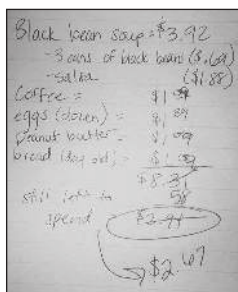 Black bean soup = $3.92
- 3 cans of black beans ($.69)
- salsa ($1.88)
Coffee = $1
eggs (dozen) = $1.89
Peanut butter =
bread (day old) =
$8.31
still
spend
$2.69